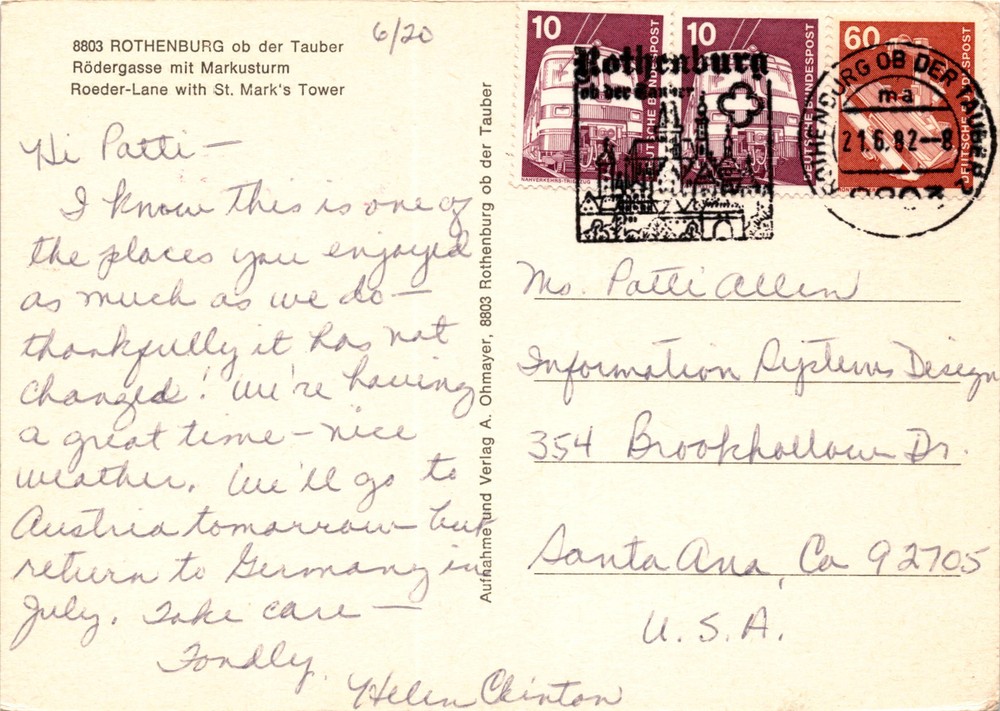 8803 ROTHENBURG ob der Tauber
Rödergasse mit Markusturm
Roeder-Lane with St. Mark's Tower
6/20
Hi Patti —
I know this is one of
the places you enjoyed
as much as we do —
thankfully it has not
changed! We're having
a great time — nice
weather. We'll go to
Austria tomorrow but
return to Germany in
July. Take care —
Fondly,
Helen Clinton
Aufnahme und Verlag A. Ohmayer, 8803 Rothenburg ob der Tauber
10
DEUTSCHE BUNDESPOST
NAHVERKEHRS-TRIEBZUG
10
DEUTSCHE BUNDESPOST
60
DEUTSCHE BUNDESPOST
Rothenburg
ob der Tauber
ROTHENBURG OB DER TAUBER
m-a
21.6.82--8
8803
Ms. Patti Allen
Information Systems Design
354 Brookhollow Dr.
Santa Ana, Ca 92705
U. S. A.